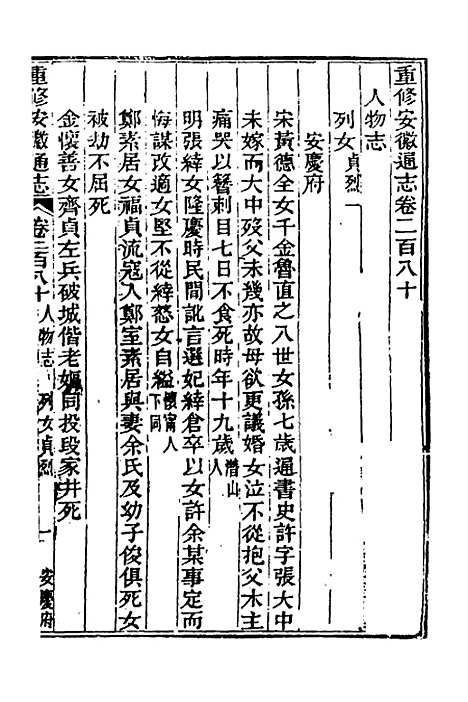 重修安徽通志卷二百八十
人物志
列女貞烈一
安慶府
宋黃德全女千金魯直之八世女孫七歲通書史許字張大中
未嫁而大中歿父未幾亦故母欲更議婚女泣不從抱父木主
痛哭以簪刺目七日不食死時年十九歲潛山人
明張緯女隆慶時民間訛言選妃緯倉卒以女許余某事定而
悔謀改適女堅不從緯怒女自縊懷甯人下同
鄭素居女福貞流寇入鄭室素居與妻余氏及幼子俊俱死女
被劫不屈死
金懷善女齊貞左兵破城偕老嫗同投段家井死
重修安徽通志 卷二百八十 人物志 列女貞烈 一 安慶府